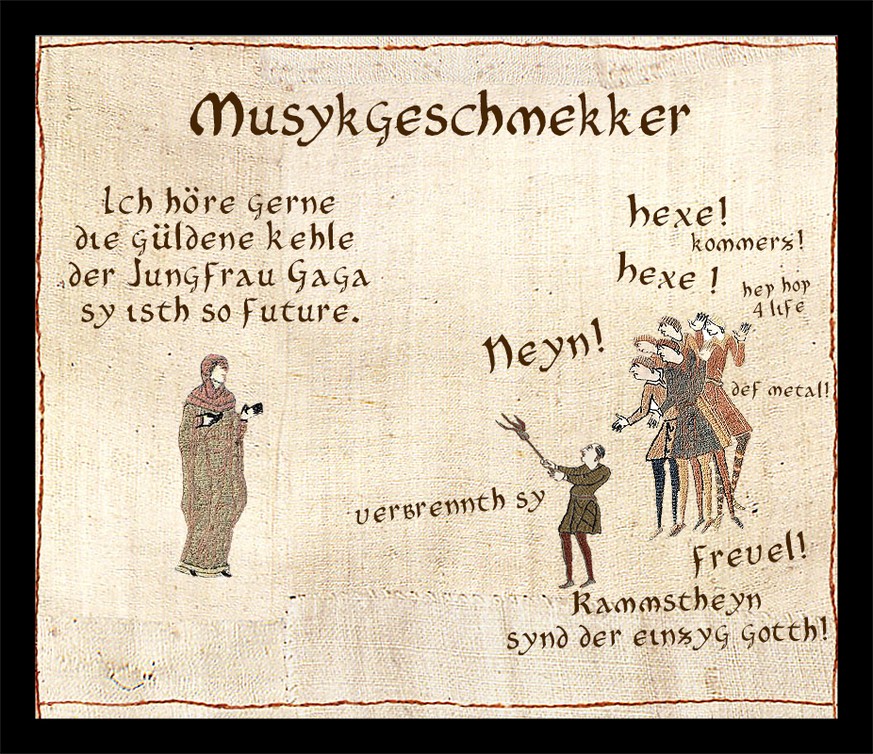 Musykgeschmekker
Ich höre gerne
die güldene kehle
der Jungfrau Gaga
sy isth so future.
hexe!
kommerz!
hexe !
hep hop
4 life
Neyn!
def metal!
verbrennth sy
frevel!
Rammstheyn
synd der einzyg Gotth!